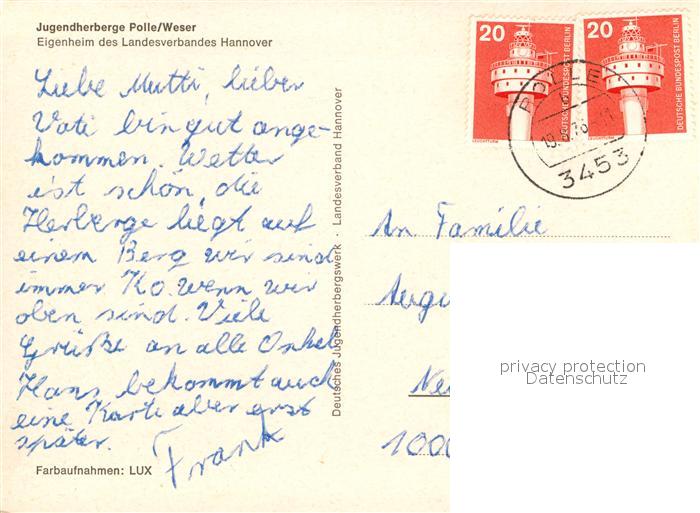 Jugendherberge Polle/Weser
Eigenheim des Landesverbandes Hannover
Liebe Mutti, lieber
Vati bin gut ange-
kommen. Wetter
ist schön, die
Herberge liegt auf
einem Berg wir sind
immer Ko. wenn wir
oben sind. Viele
Grüße an alle Onkel
Hans bekommt auch
eine Karte aber erst
später.
Frank
Farbaufnahmen: LUX
Deutsches Jugendherbergswerk · Landesverband Hannover
20
DEUTSCHE BUNDESPOST BERLIN
LEUCHTTURM
20
DEUTSCHE BUNDESPOST BERLIN
POLLE
3453
An Familie
privacy protection
Datenschutz